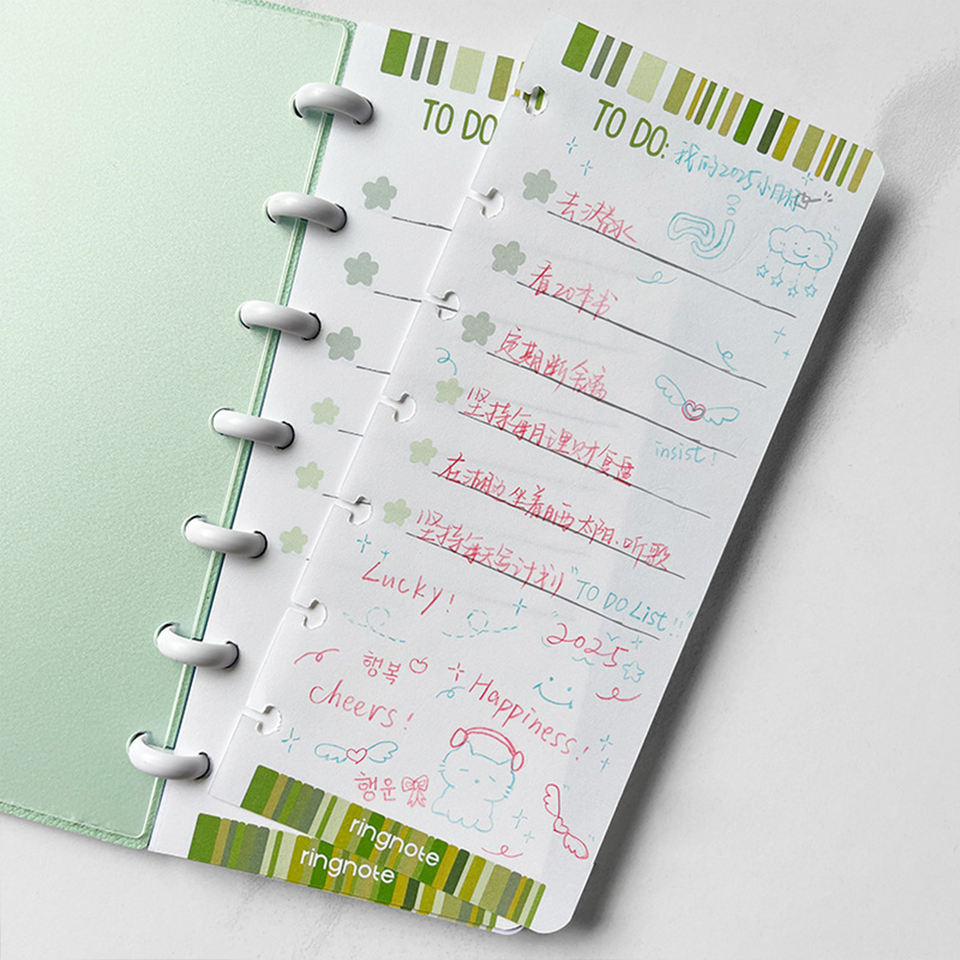 TO DO
TO DO: 我的2025小目标
去潜水
看20本书
定期断舍离
坚持每月理财复盘
insist!
在湖边坐着晒太阳.听歌
坚持每天写计划 "TO DO List!!"
Lucky!
2025
행복
Happiness!
cheers!
행운
ringnote
ringnote